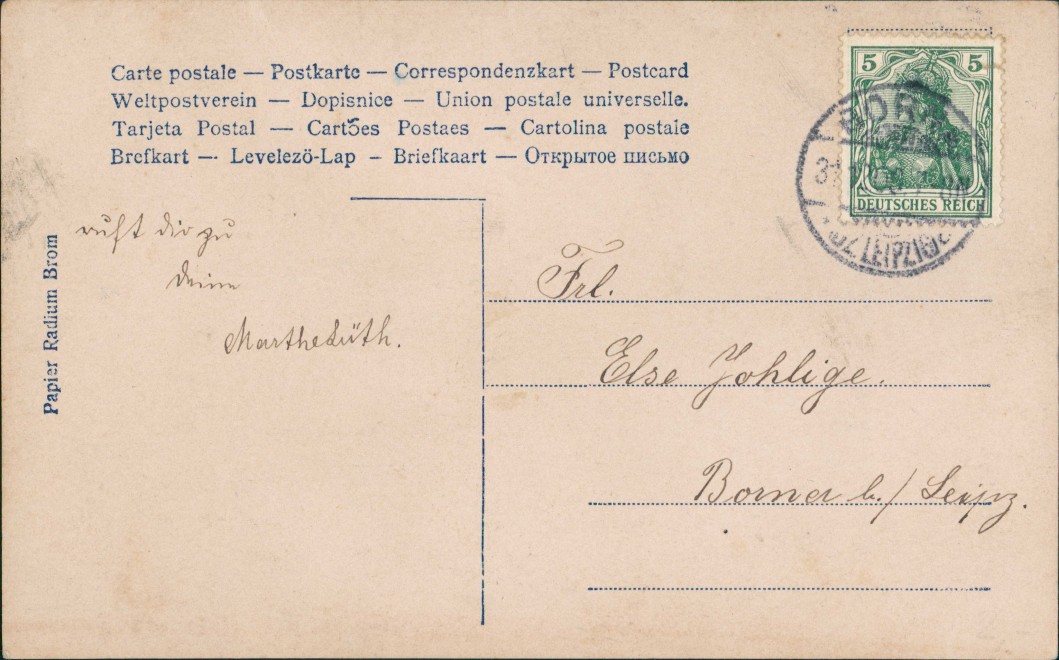 Carte postale — Postkarte — Correspondenzkart — Postcard
Weltpostverein — Dopisnice — Union postale universelle.
Tarjeta Postal — Cartões Postaes — Cartolina postale
Brefkart — Levelezö-Lap – Briefkaart — Открытое письмо
5 5
DEUTSCHES REICH
BORNA
BZ. LEIPZIG
ruft dir zu
Deine
Marthe Lüth.
Papier Radium Brom
Frl.
Else Johlige.
Borna b./ Leipz.